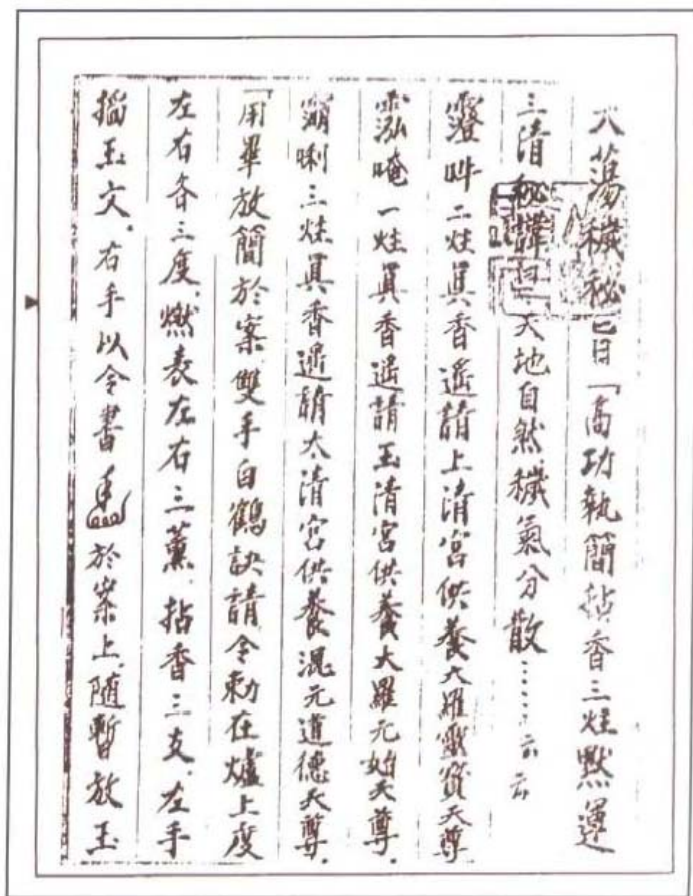 大蕩穢秘曰「高功執簡拈香三炷默運
三清秘諱曰天地自然穢氣分散……云云
吽二炷真香遙請上清宮供養大羅靈寶天尊
唵一炷真香遙請玉清宮供養大羅元始天尊.
唎三炷真香遙請太清宮供養混元道德天尊.
「用畢放簡於案.雙手白鶴訣請令勅在爐上度
左右各三度.燃表左右三薰.拈香三支.左手
搯玉文.右手以令書於案上.隨暫放玉